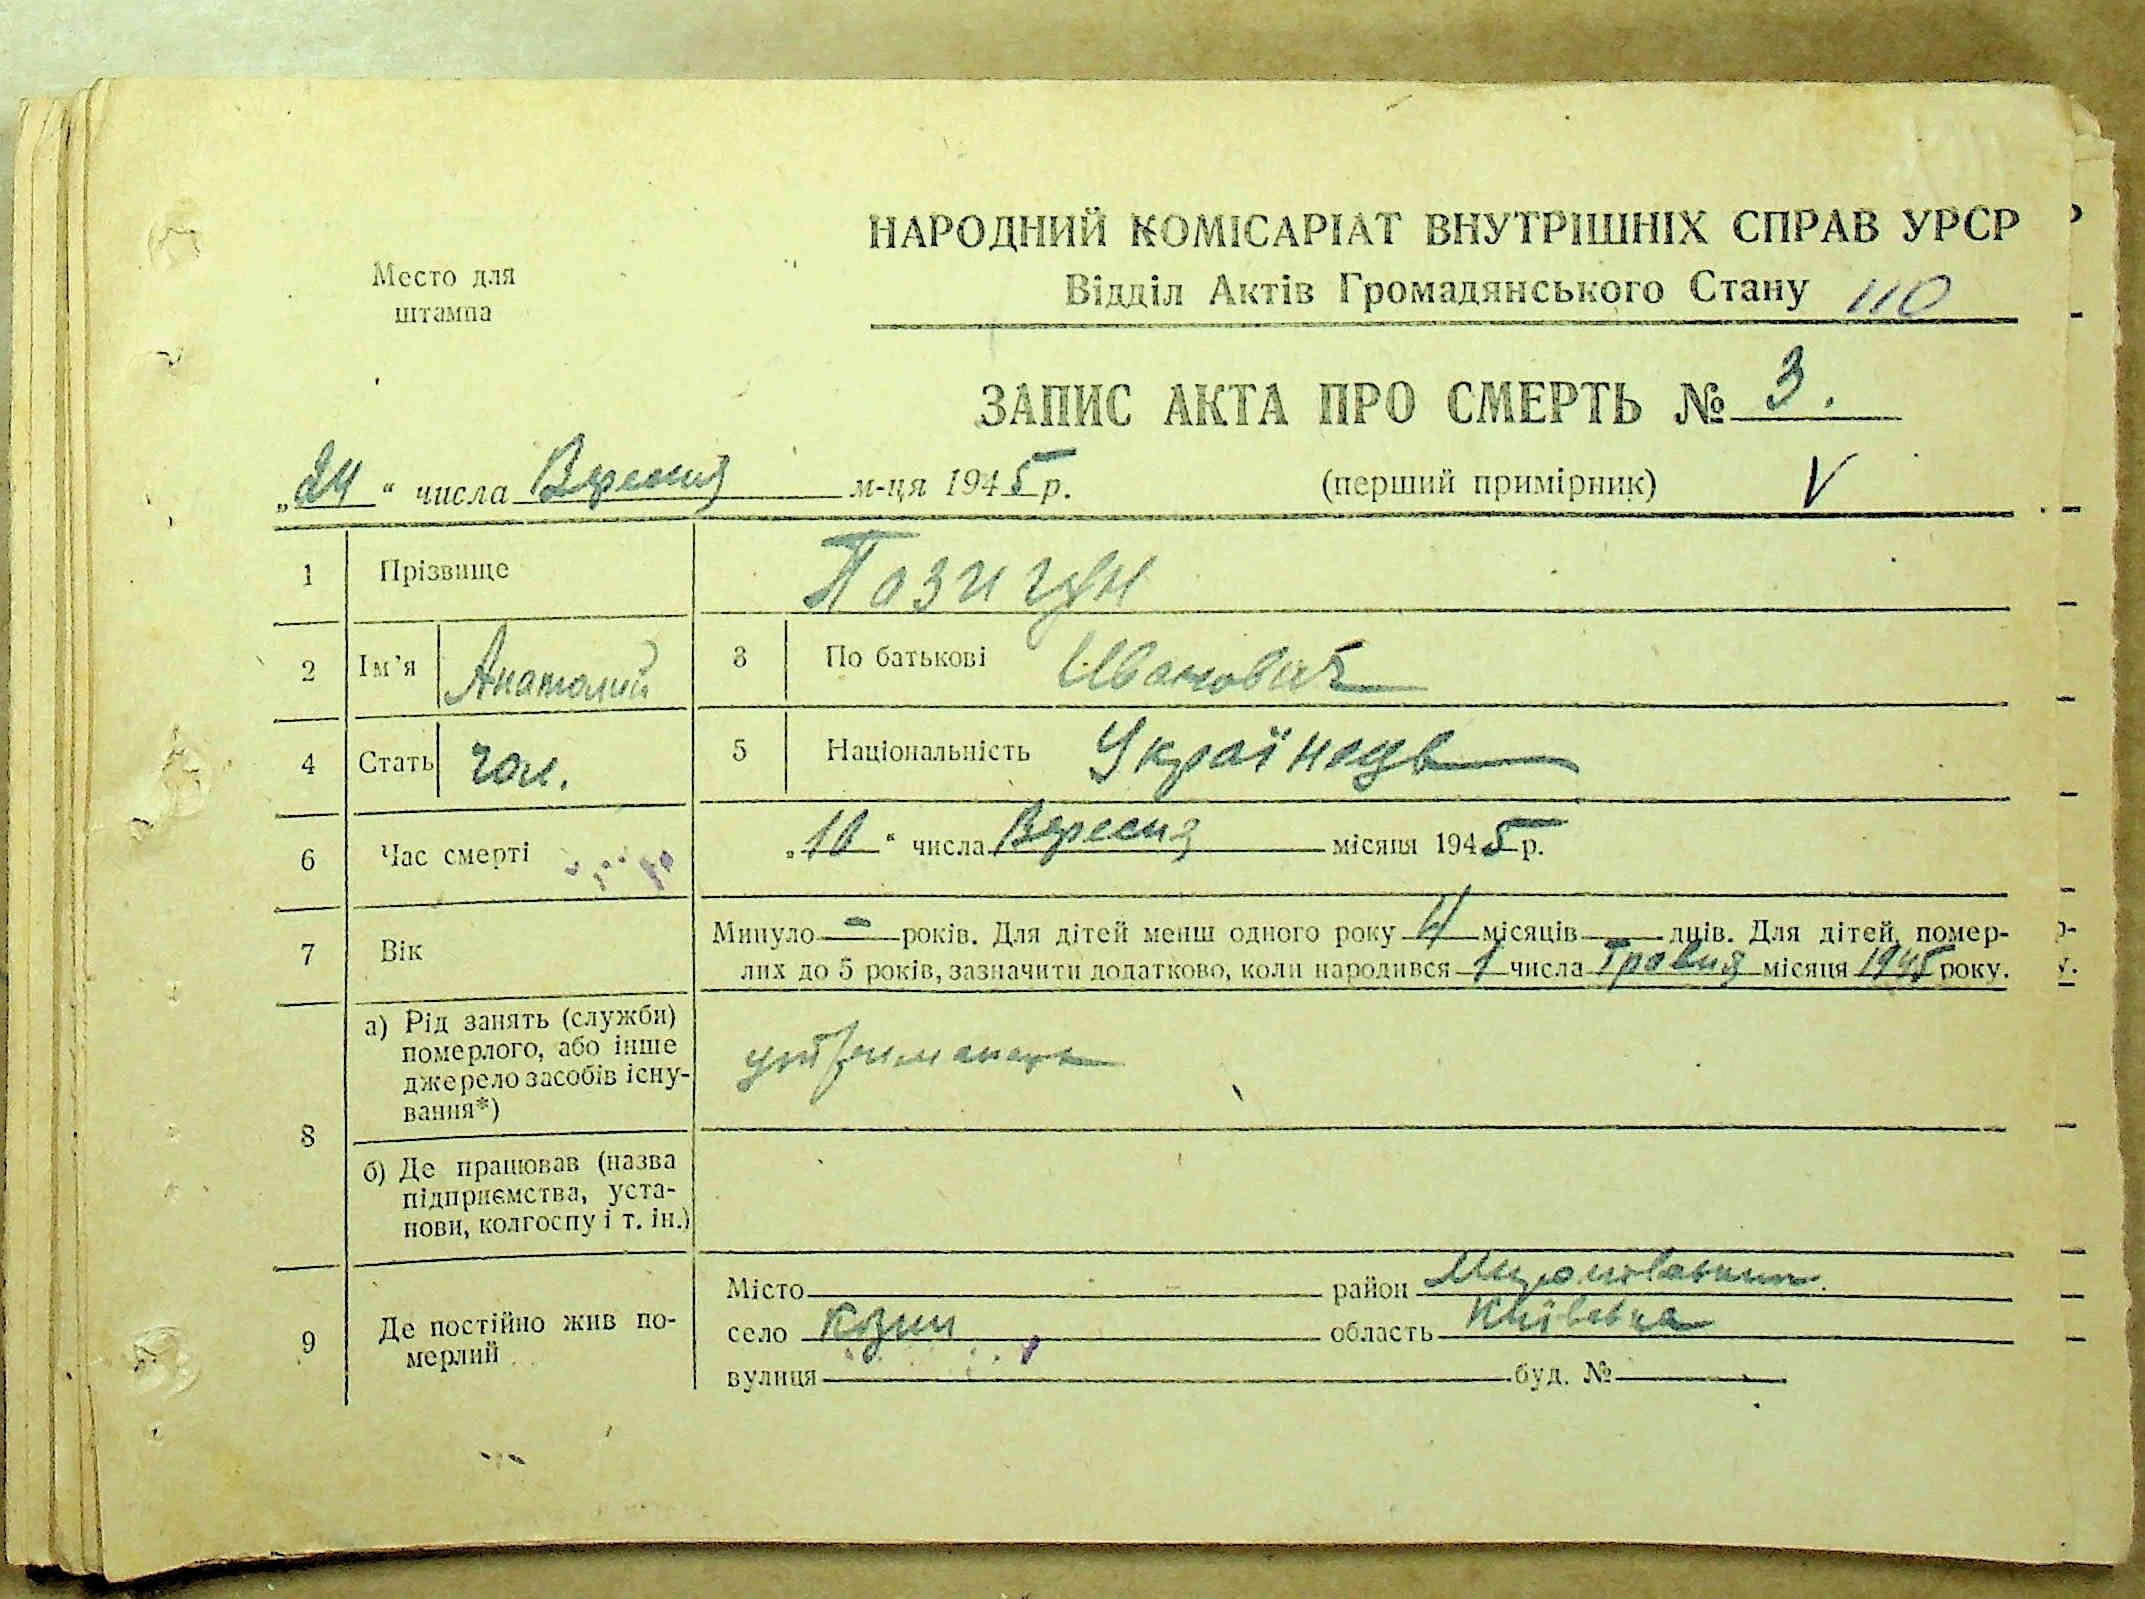 НАРОДНИЙ КОМІСАРІАТ ВНУТРІШНІХ СПРАВ УРСР
Место для
штампа
Відділ Актів Громадянського Стану 110
ЗАПИС АКТА ПРО СМЕРТЬ № 3.
„24“ числа Вересня м-ця 1945 р. (перший примірник) V
1 Прізвище Позигун
2 Ім'я Анатолий 3 По батькові Иванович
4 Стать чол. 5 Національність Українець
6 Час смерті „10“ числа Вересня місяця 1945 р.
7 Вік Минуло - років. Для дітей менш одного року 4 місяців днів. Для дітей, помер-
лих до 5 років, зазначити додатково, коли народився 1 числа Травня місяця 1945 року.
8 а) Рід занять (служби)
померлого, або інше
джерело засобів існу-
вання*) утриманець
б) Де працював (назва
підприємства, уста-
нови, колгоспу і т. ін.)
9 Де постійно жив по-
мерлий
Місто район
село Козин область Київська
вулиця буд. №